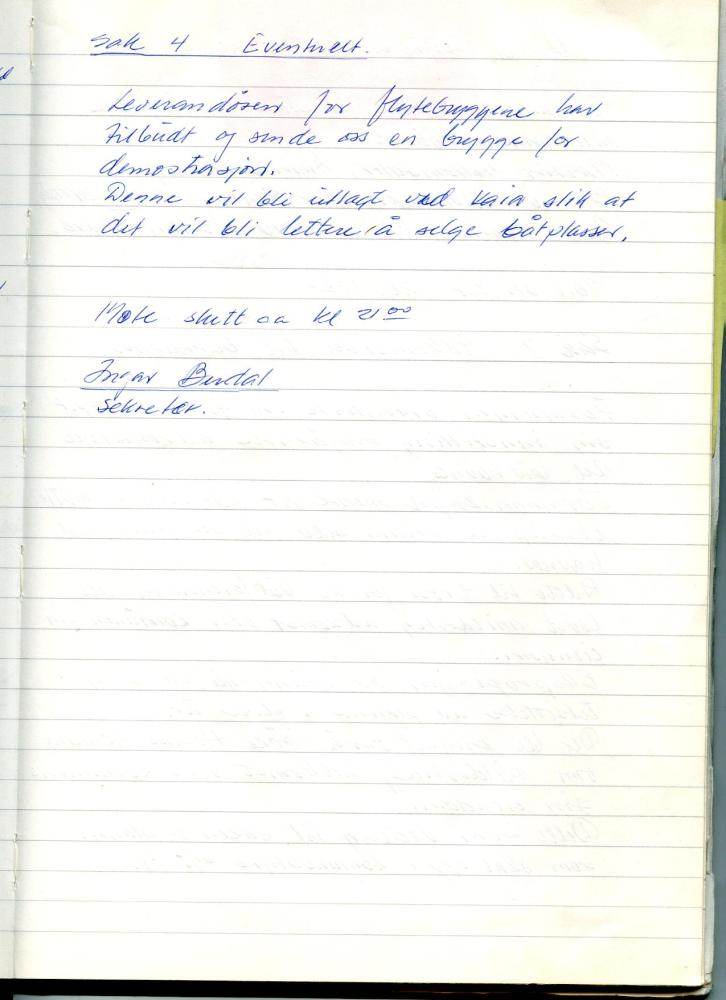 Sak 4 Eventuelt.
Leverandøren for flytebryggene har
tilbudt og sende oss en brygge for
demostrasjon.
Denne vil bli utlagt ved kaia slik at
det vil bli lettere å selge båtplasser.
Møte slutt ca kl 21 00
Ingar
sekretær.